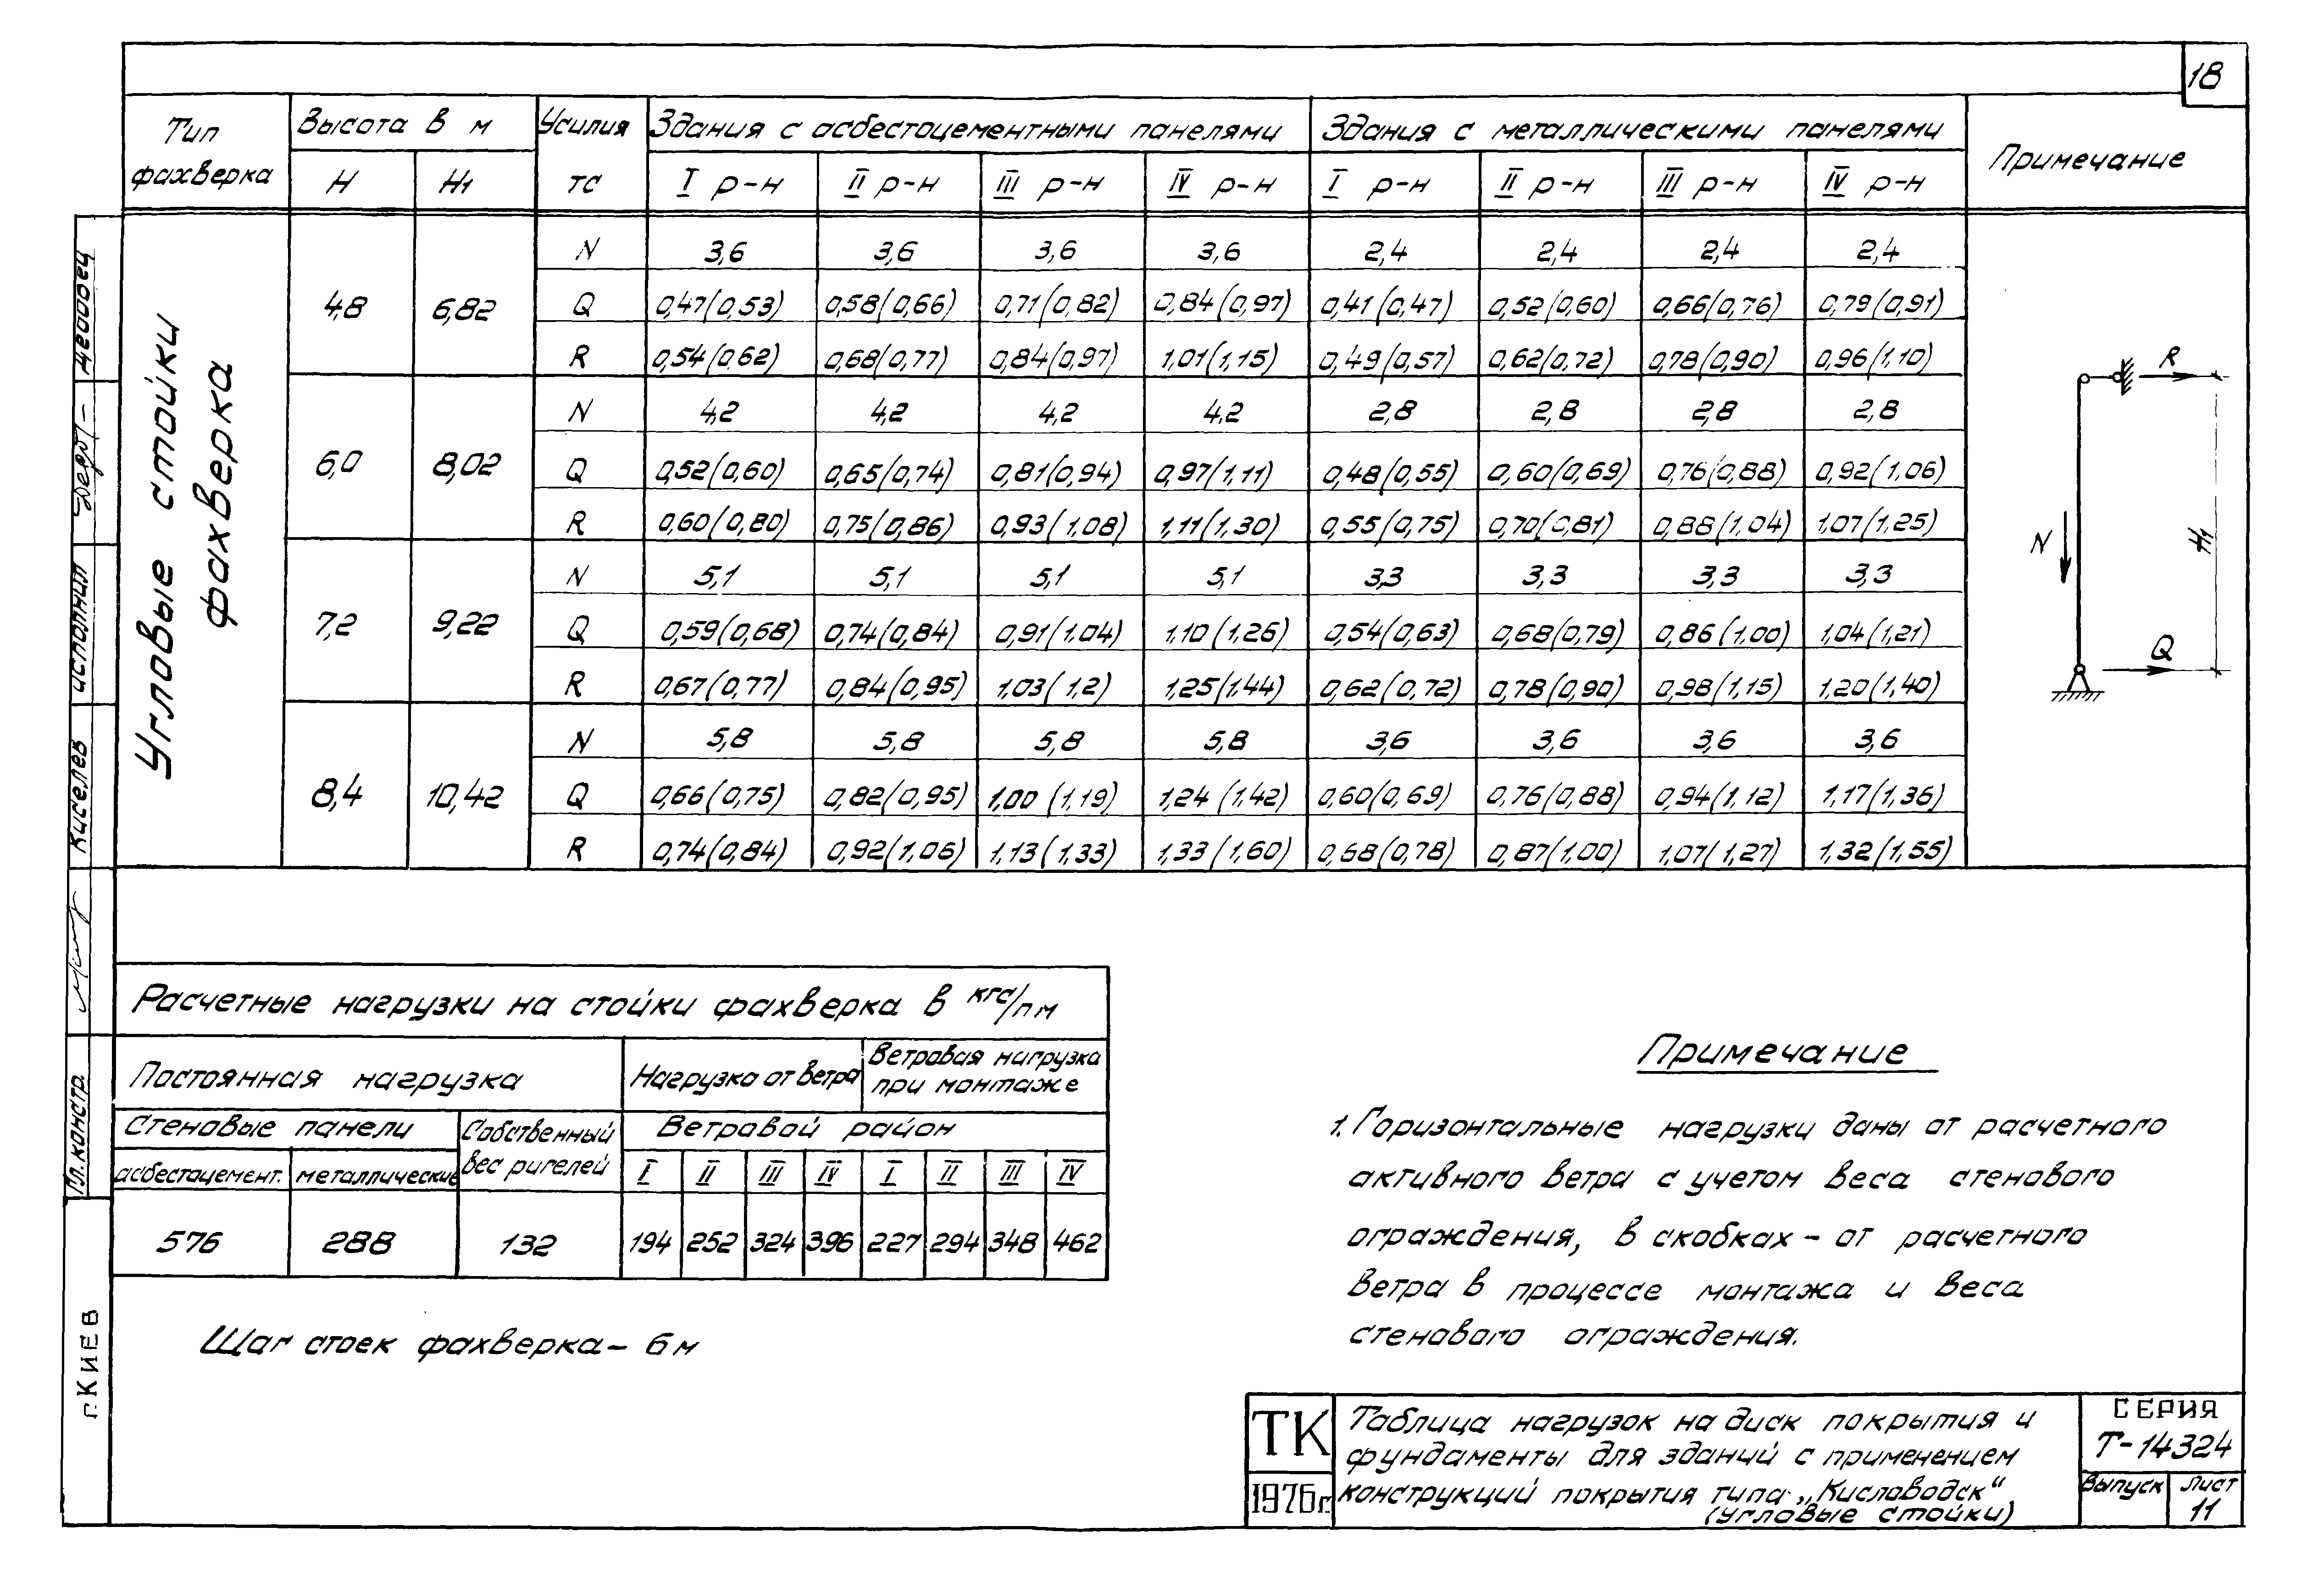 18
Тип фахверка
Высота в м
Усилия тс
Здания с асбестоцементными панелями
Здания с металлическими панелями
Примечание
H H₁ I р-н II р-н III р-н IV р-н I р-н II р-н III р-н IV р-н
Угловые стойки фахверка
4,8 6,82
N 3,6 3,6 3,6 3,6 2,4 2,4 2,4 2,4
Q 0,47(0,53) 0,58(0,66) 0,71(0,82) 0,84(0,97) 0,41(0,47) 0,52(0,60) 0,66(0,76) 0,79(0,91)
R 0,54(0,62) 0,68(0,77) 0,84(0,97) 1,01(1,15) 0,49(0,57) 0,62(0,72) 0,78(0,90) 0,96(1,10)
6,0 8,02
N 4,2 4,2 4,2 4,2 2,8 2,8 2,8 2,8
Q 0,52(0,60) 0,65(0,74) 0,81(0,94) 0,97(1,11) 0,48(0,55) 0,60(0,69) 0,76(0,88) 0,92(1,06)
R 0,60(0,80) 0,75(0,86) 0,93(1,08) 1,11(1,30) 0,55(0,75) 0,70(0,81) 0,88(1,04) 1,07(1,25)
7,2 9,22
N 5,1 5,1 5,1 5,1 3,3 3,3 3,3 3,3
Q 0,59(0,68) 0,74(0,84) 0,91(1,04) 1,10(1,26) 0,54(0,63) 0,68(0,79) 0,86(1,00) 1,04(1,21)
R 0,67(0,77) 0,84(0,95) 1,03(1,2) 1,25(1,44) 0,62(0,72) 0,78(0,90) 0,98(1,15) 1,20(1,40)
8,4 10,42
N 5,8 5,8 5,8 5,8 3,6 3,6 3,6 3,6
Q 0,66(0,75) 0,82(0,95) 1,00(1,19) 1,24(1,42) 0,60(0,69) 0,76(0,88) 0,94(1,12) 1,17(1,36)
R 0,74(0,84) 0,92(1,06) 1,13(1,33) 1,33(1,60) 0,68(0,78) 0,87(1,00) 1,07(1,27) 1,32(1,55)
R
N
H₁
Q
Расчетные нагрузки на стойки фахверка в кгс/пм
Постоянная нагрузка
Нагрузка от ветра
Ветровая нагрузка
при монтаже
Стеновые панели
Собственный
вес ригелей
Ветровой район
асбестоцемент. металлические
I II III IV I II III IV
576 288 132 194 252 324 396 227 294 348 462
Шаг стоек фахверка – 6 м
Примечание
1. Горизонтальные нагрузки даны от расчетного
активного ветра с учетом веса стенового
ограждения, в скобках – от расчетного
ветра в процессе монтажа и веса
стенового ограждения.
ТК
1976г.
Таблица нагрузок на диск покрытия и
фундаменты для зданий с применением
конструкций покрытия типа „Кисловодск“
(угловые стойки)
СЕРИЯ
Т-14324
Выпуск
Лист
11
исполнил
Киселев
Гл.констр.
г. КИЕВ